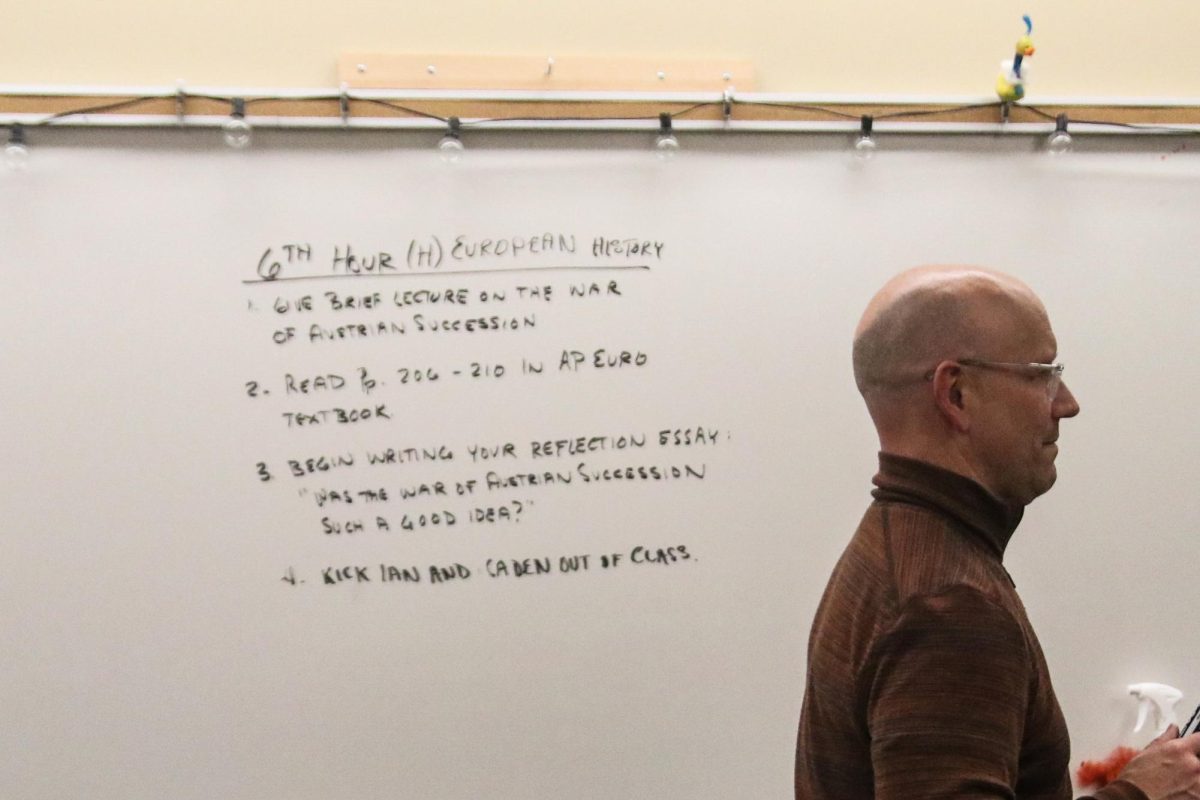 6TH HOUR (H) EUROPEAN HISTORY
1. GIVE BRIEF LECTURE ON THE WAR
OF AUSTRIAN SUCCESSION
2. READ Pp. 206 - 210 IN AP EURO
TEXTBOOK
3. BEGIN WRITING YOUR REFLECTION ESSAY:
"WAS THE WAR OF AUSTRIAN SUCCESSION
SUCH A GOOD IDEA?"
4. KICK IAN AND CADEN OUT OF CLASS.